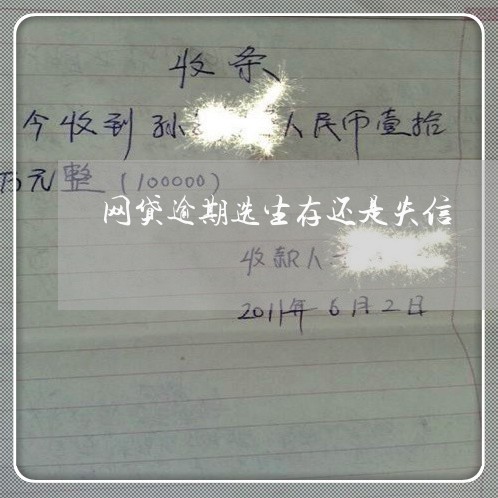 收条
今收到孙 人民币壹拾
万元整(100000)
网贷逾期选生存还是失信
收款人
2011年6月2日